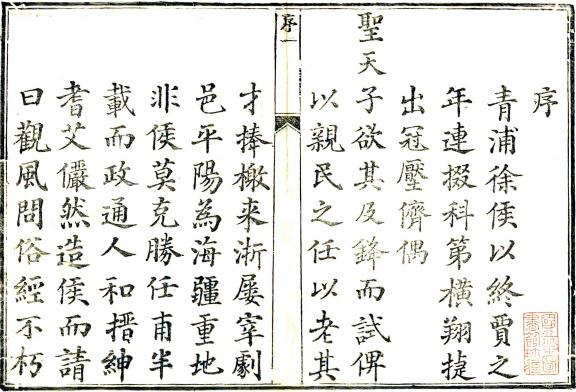 序
青浦徐侯以終賈之
年連掇科第橫翔捷
出冠壓儕偶
聖天子欲其及鋒而試俾
以親民之任以老其
序一
才捧檄来浙屢宰劇
邑平陽為海疆重地
非侯莫克勝任甫半
載而政通人和搢紳
耆艾儼然造侯而請
曰觀風問俗經不朽